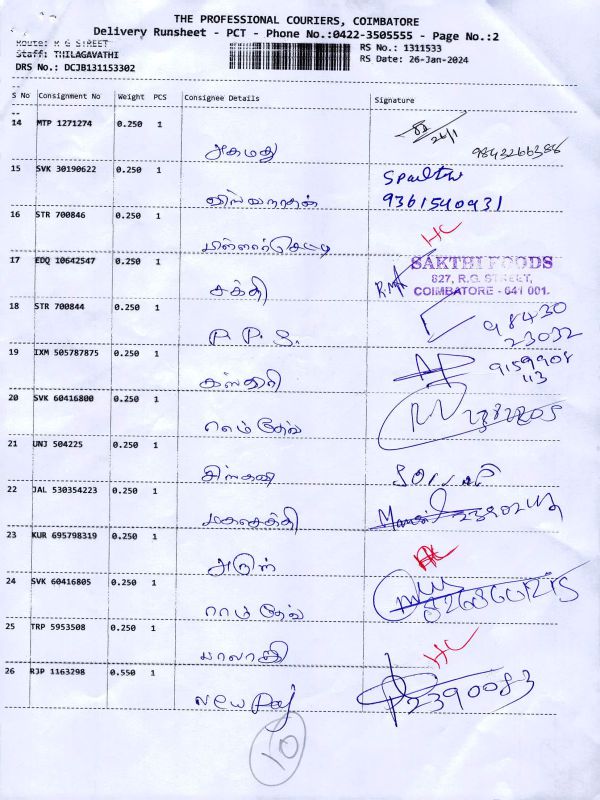 THE PROFESSIONAL COURIERS, COIMBATORE
Delivery Runsheet - PCT - Phone No.:0422-3505555 - Page No.:2
Route: M G STREET
Staff: THILAGAVATHI
DRS No.: DCJB131153302
RS No.: 1311533
RS Date: 26-Jan-2024
S No Consignment No Weight PCS Consignee Details Signature
14 MTP 1271274 0.250 1
26/1
அகமது 9843266388
15 SVK 30190622 0.250 1
விஸ்வநாதன் 9361540931
16 STR 700846 0.250 1
HC
17 EDQ 10642547 0.250 1
SAKTHI FOODS
827, R.G. STREET,
COIMBATORE - 641 001.
சக்தி
18 STR 700844 0.250 1
P. P. S. 98430
23032
19 IXM 505787875 0.250 1
கஸ்தூரி 9159908
113
20 SVK 60416800 0.250 1
ராம் தேவ்
21 UNJ 504225 0.250 1
22 JAL 530354223 0.250 1
மகாசக்தி
23 KUR 695798319 0.250 1
அருண் HC
24 SVK 60416805 0.250 1
ராம் தேவ்
25 TRP 5953508 0.250 1
பாலாஜி HC
26 RJP 1163298 0.550 1
New Raj 2390083
10